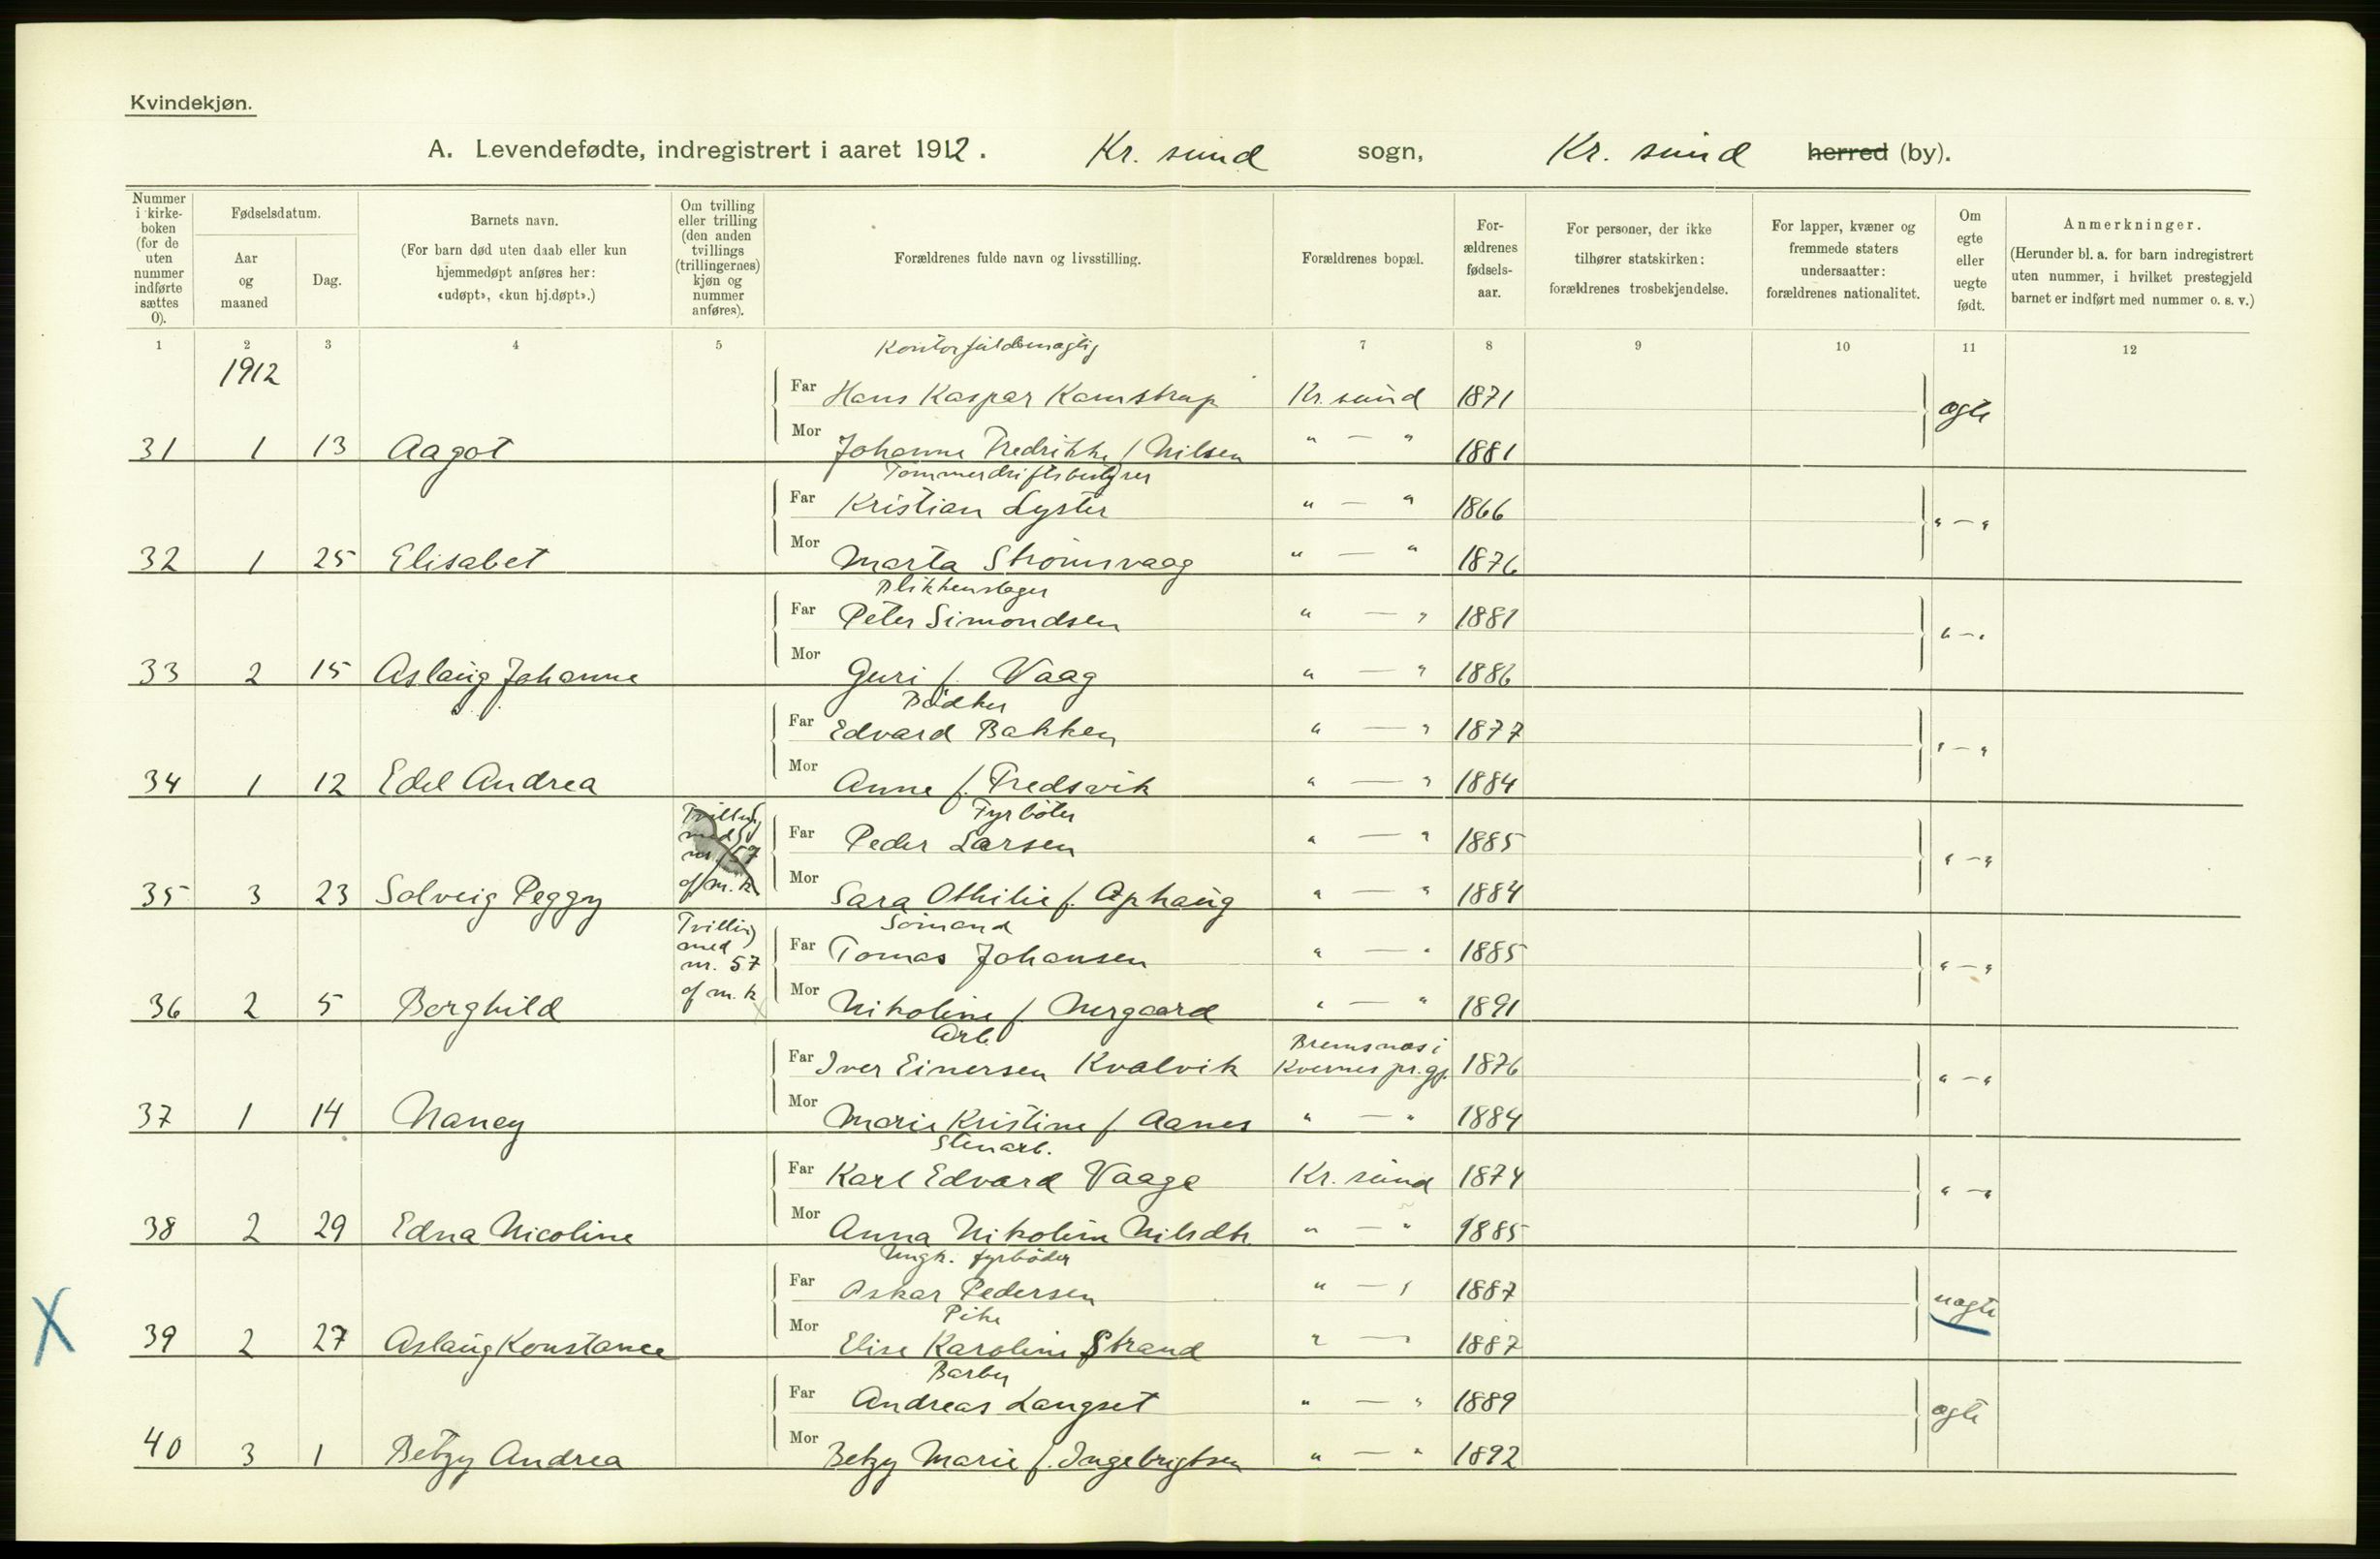 Kvindekjøn.
A. Levendefødte, indregistrert i aaret 1912. Kr. sund sogn, Kr. sund herred (by).
Nummer i kirke- boken (for de uten nummer indførte sættes 0).
Fødselsdatum.
Aar og maaned
Dag.
Barnets navn.
(For barn død uten daab eller kun hjemmedøpt anføres her: «udøpt», «kun hj.døpt».)
Om tvilling eller trilling (den anden tvillings (trillingernes) kjøn og nummer anføres).
Forældrenes fulde navn og livsstilling.
Forældrenes bopæl.
For- ældrenes fødsels- aar.
For personer, der ikke tilhører statskirken: forældrenes trosbekjendelse.
For lapper, kvæner og fremmede staters undersaatter: forældrenes nationalitet.
Om egte eller uegte født.
Anmerkninger.
(Herunder bl. a. for barn indregistrert uten nummer, i hvilket prestegjeld barnet er indført med nummer o. s. v.)
1 2 3 4 5 7 8 9 10 11 12
1912
Kontorfuldmægtig
Far Hans Kaspar Kamstrup Kr. sund 1871 ægte
31 1 13 Aagot Mor Johanne Fredrikke f Nilsen " — " 1881
Tømmerdriftsbestyrer
Far Kristian Lyster " — " 1866 " — "
32 1 25 Elisabet Mor Marta Strømsvaag " — " 1876
Blikkenslager
Far Peter Simondsen " — " 1881 " — "
33 2 15 Aslaug Johanne Mor Guri f. Vaag " — " 1886
Bødker
Far Edvard Bakken " — " 1877 " — "
34 1 12 Edel Andrea Mor Anne f. Fredsvik " — " 1884
Tvilling med nr. 57 af m. k
Fyrbøter
Far Peder Larsen " — " 1885 " — "
35 3 23 Solveig Peggy Mor Sara Othilie f. Aphaug " — " 1884
Tvilling med nr. 57 af m. k
Sømand
Far Tomas Johansen " — " 1885 " — "
36 2 5 Borghild Mor Nikoline f Nergaard " — " 1891
Arb.
Far Iver Einersen Kvalvik Bremsnes i Kvernes pr.gj. 1876 " — "
37 1 14 Nancy Mor Marie Kristine f Aanes " — " 1884
Stenarb.
Far Karl Edvard Vaage Kr. sund 1874 " — "
38 2 29 Edna Nicoline Mor Anna Nikoline Nilsdtr. " — " 1885
Ungk. fyrbøder
Far Oskar Pedersen " — " 1887 uægte
Pike
X 39 2 27 Aslaug Konstance Mor Elise Karoline Strand " — " 1887
Barber
Far Andreas Langset " — " 1889 ægte
40 3 1 Betzy Andrea Mor Betzy Marie f. Ingebrigtsen " — " 1892